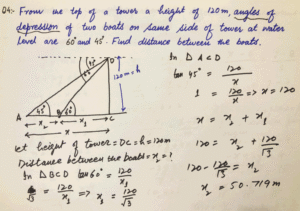 Q4:- From the top of a tower a height of 120m, angles of
depression of two boats on same side of tower at water
level are 60° and 45°. Find distance between the boats.
D
45°
60°
120m = h
45°
60°
A
B
C
x₂
x₁
x
let height of tower = DC = h = 120m
Distance between the boats = x₂ = ?
In △ BCD tan 60° = 120/x₁
√3 = 120/x₁ => x₁ = 120/√3
In △ ACD
tan 45° = 120/x
1 = 120/x => x = 120
x = x₂ + x₁
120 = x₂ + 120/√3
120 - 120/√3 = x₂
x₂ = 50.719m